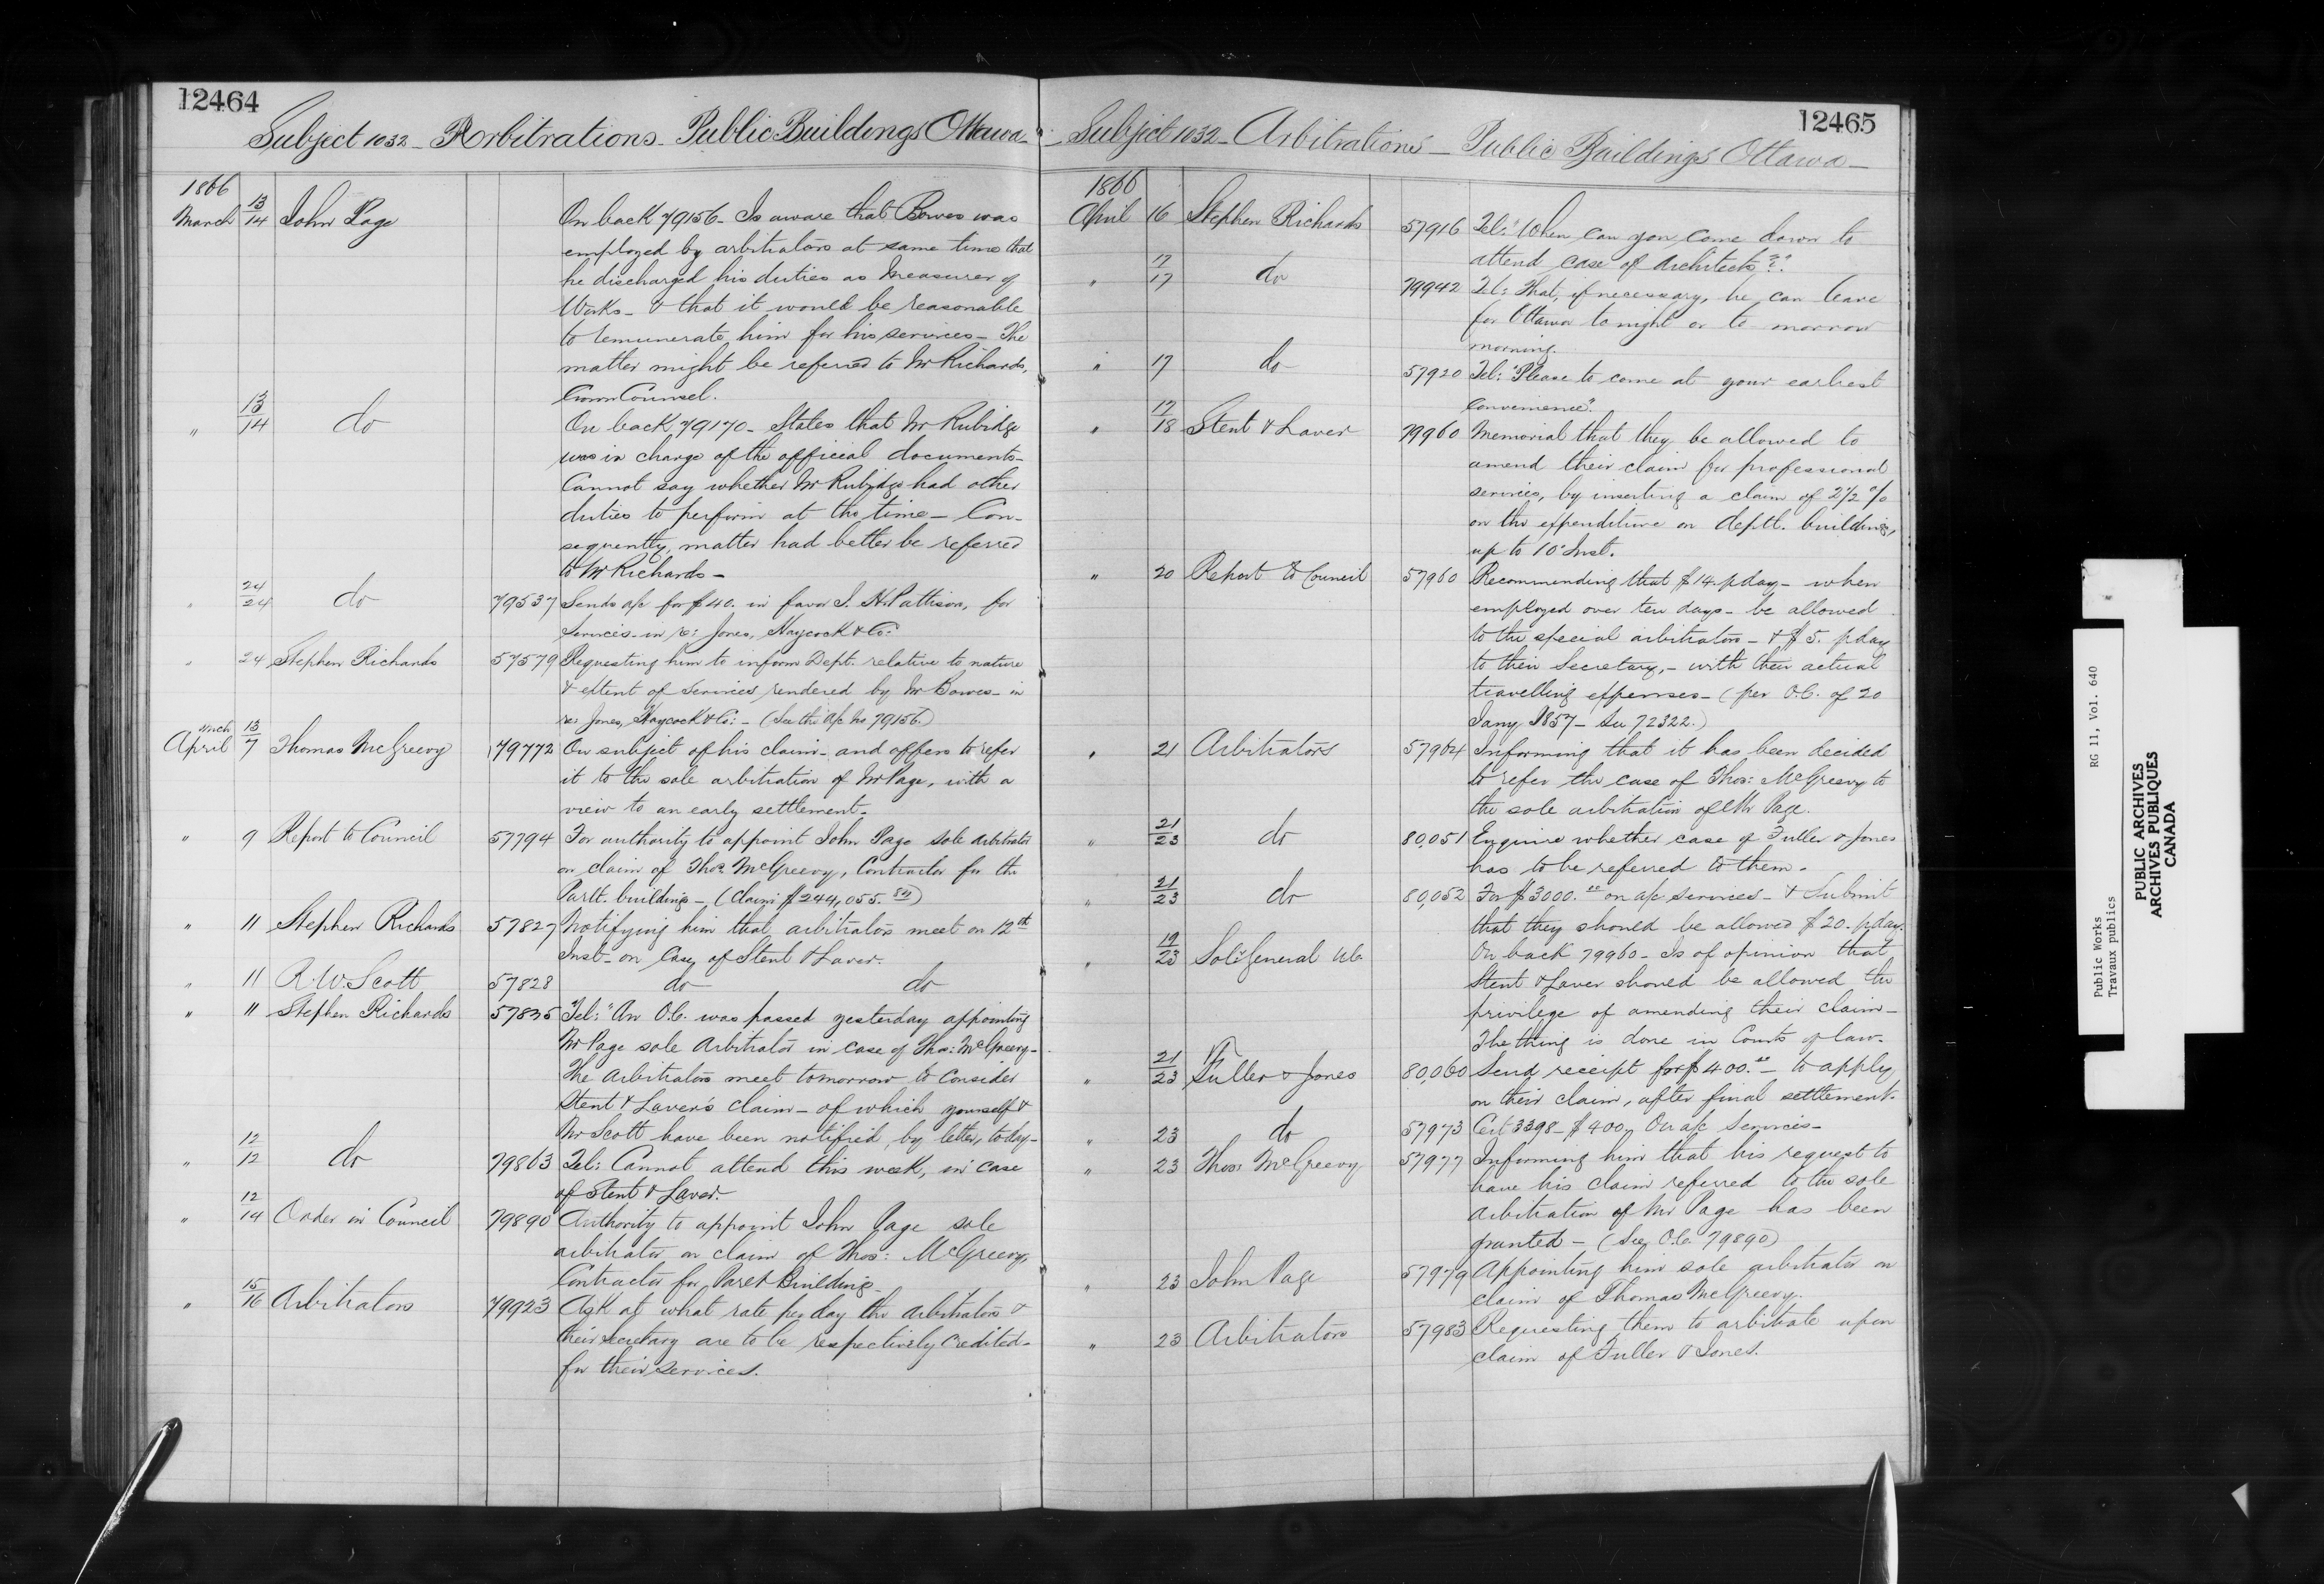 12464
Subject 1032 - Arbitrations - Public Buildings Ottawa -
1866
March 13/14 John Page On back 79156 - Is aware that Bowes was
employed by arbitrators at same time that
he discharged his duties as Measurer of
Works - & that it would be reasonable
to remunerate him for his services - The
matter might be referred to Mr Richards,
Crown Counsel.
" 13/14 do On back 79170 - States that Mr Rubidge
was in charge of the official documents -
Cannot say whether Mr Rubidge had other
duties to perform at the time - Con-
sequently, matter had better be referred
to Mr Richards -
" 24/24 do 79537 Sends a/c for $40. in favor I. H. Pattison, for
Services - in re: Jones, Haycock & Co:
" 24 Stephen Richards 57579 Requesting him to inform Dept. relative to nature
& extent of Services rendered by Mr Bowes - in
re: Jones, Haycock & Co: - (See the a/c No 79156.)
Mch 13
April 7 Thomas McGreevy 79772 On subject of his claim - and offers to refer
it to the sole arbitration of Mr Page, with a
view to an early settlement.
" 9 Report to Council 57794 For authority to appoint John Page sole arbitrator
on claim of Thos. McGreevy, Contractor for the
Parlt. buildings - (Claim $244,055.84)
" 11 Stephen Richards 57827 Notifying him that arbitrators meet on 12th
Inst - on Case of Stent & Laver.
" 11 R. W. Scott 57828 do do
" 11 Stephen Richards 57835 Tel: "An O.C. was passed yesterday appointing
Mr Page sole Arbitrator in case of Thos: McGreevy -
The Arbitrators meet tomorrow to consider
Stent & Laver's claim - of which yourself &
Mr Scott have been notified, by letter, today -
" 12/12 do 79863 Tel: Cannot attend this week, in case
of Stent & Laver.
" 12/14 Order in Council 79890 Authority to appoint John Page sole
arbitrator on claim of Thos: McGreevy,
Contractor for Parlt Building -
" 15/16 Arbitrators 79923 Ask at what rate per day the arbitrators &
their secretary are to be respectively credited -
for their services.
12465
Subject 1032 - Arbitrations - Public Buildings Ottawa -
1866
April 16 Stephen Richards 57916 Tel: "When can you come down to
attend case of Architects?"
" 17/17 do 79942 Tel: That, if necessary, he can leave
for Ottawa to night or to-morrow
morning.
" 17 do 57920 Tel: "Please to come at your earliest
convenience".
" 17/18 Stent & Laver 79960 Memorial that they be allowed to
amend their claim for professional
services, by inserting a claim of 2 1/2 %
on the expenditure on deptl. buildings,
up to 10" Inst.
" 20 Report to Council 57960 Recommending that $14. p day - when
employed over ten days - be allowed
to the special arbitrators - & $5. p day
to their Secretary, - with their actual
travelling expenses - (per O.C. of 20
Jany 1857 - See 72322.)
" 21 Arbitrators 57964 Informing that it has been decided
to refer the case of Thos: McGreevy to
the sole arbitration of Mr Page.
" 21/23 do 80,051 Enquire whether case of Fuller & Jones
has to be referred to them.
" 21/23 do 80,052 For $3000.00 on a/c services - & Submit
that they should be allowed $20. p day.
" 19/23 Solr General U.C. On back 79960 - Is of opinion that
Stent & Laver should be allowed the
privilege of amending their claim -
The thing is done in Courts of law.
" 21/23 Fuller & Jones 80,060 Send receipt for $400.00 - to apply
on their claim, after final settlement.
" 23 do 57973 Cert 3398 - $400. On a/c Services -
" 23 Thos: McGreevy 57977 Informing him that his request to
have his claim referred to the sole
arbitration of Mr Page has been
granted - (See O.C. 79890)
" 23 John Page 57979 Appointing him sole arbitrator on
claim of Thomas McGreevy.
" 23 Arbitrators 57983 Requesting them to arbitrate upon
claim of Fuller & Jones.
Public Works RG 11, Vol. 640
Travaux publics
PUBLIC ARCHIVES
ARCHIVES PUBLIQUES
CANADA